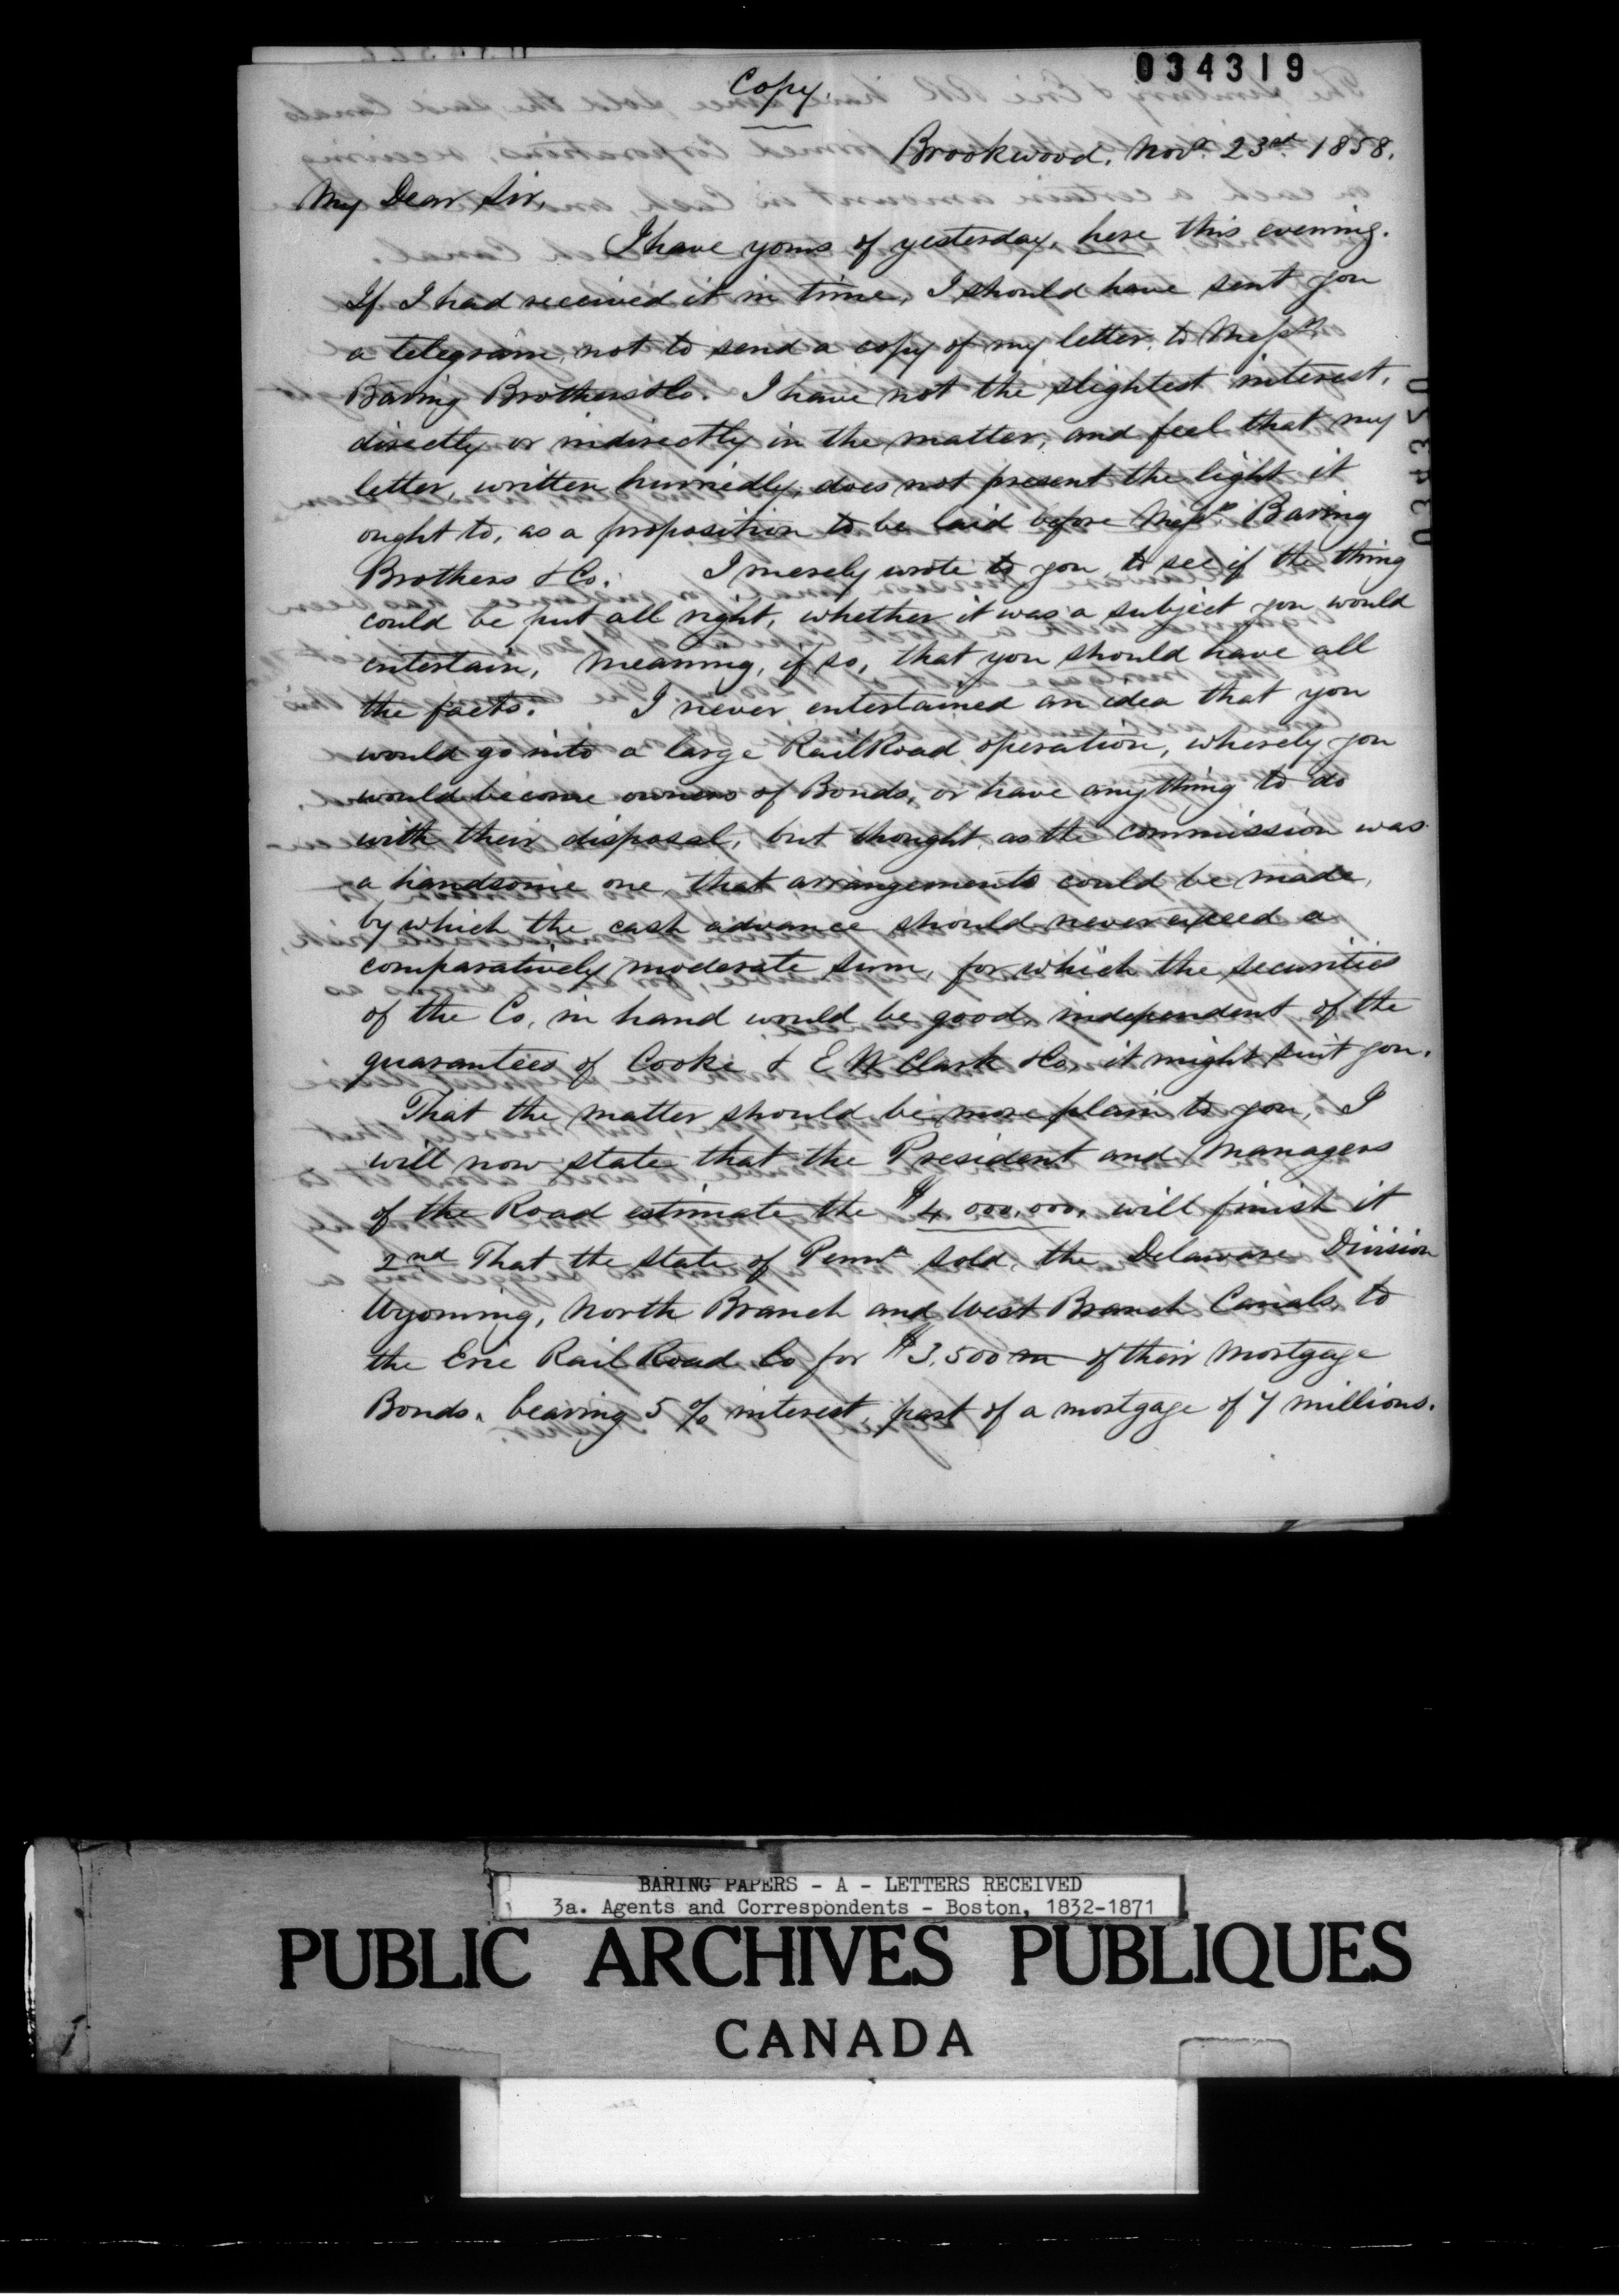 034319
Copy.
Brookwood. Novr. 23rd 1858.
My Dear Sir,
I have yours of yesterday, here this evening.
If I had received it in time, I should have sent you
a telegram, not to send a copy of my letter, to Messrs.
Baring Brothers & Co. I have not the slightest interest,
directly or indirectly in the matter, and feel that my
letter, written hurriedly, does not present the light it
ought to, as a proposition to be laid before Messrs. Baring
Brothers & Co. I merely wrote to you to see if the thing
could be put all right, whether it was a subject you would
entertain, meaning, if so, that you should have all
the facts. I never entertained an idea that you
would go into a large RailRoad operation, whereby you
would become owners of Bonds, or have anything to do
with their disposal, but thought as the commission was
a handsome one, that arrangements could be made,
by which the cash advance should never exceed a
comparatively moderate sum, for which the securities
of the Co, in hand would be good, independent of the
guarantees of Cooke & E W Clark & Co, it might suit you.
That the matter should be more plain to you, I
will now state that the President and Managers
of the Road estimate the $4,000,000, will finish it
2nd That the State of Penna sold, the Delaware Division
Wyoming, North Branch and West Branch Canals, to
the Erie Rail Road Co for $3,500 m of their Mortgage
Bonds. bearing 5 % interest, part of a mortgage of 7 millions.
034320
BARING PAPERS - A - LETTERS RECEIVED
3a. Agents and Correspondents - Boston, 1832-1871
PUBLIC ARCHIVES PUBLIQUES
CANADA